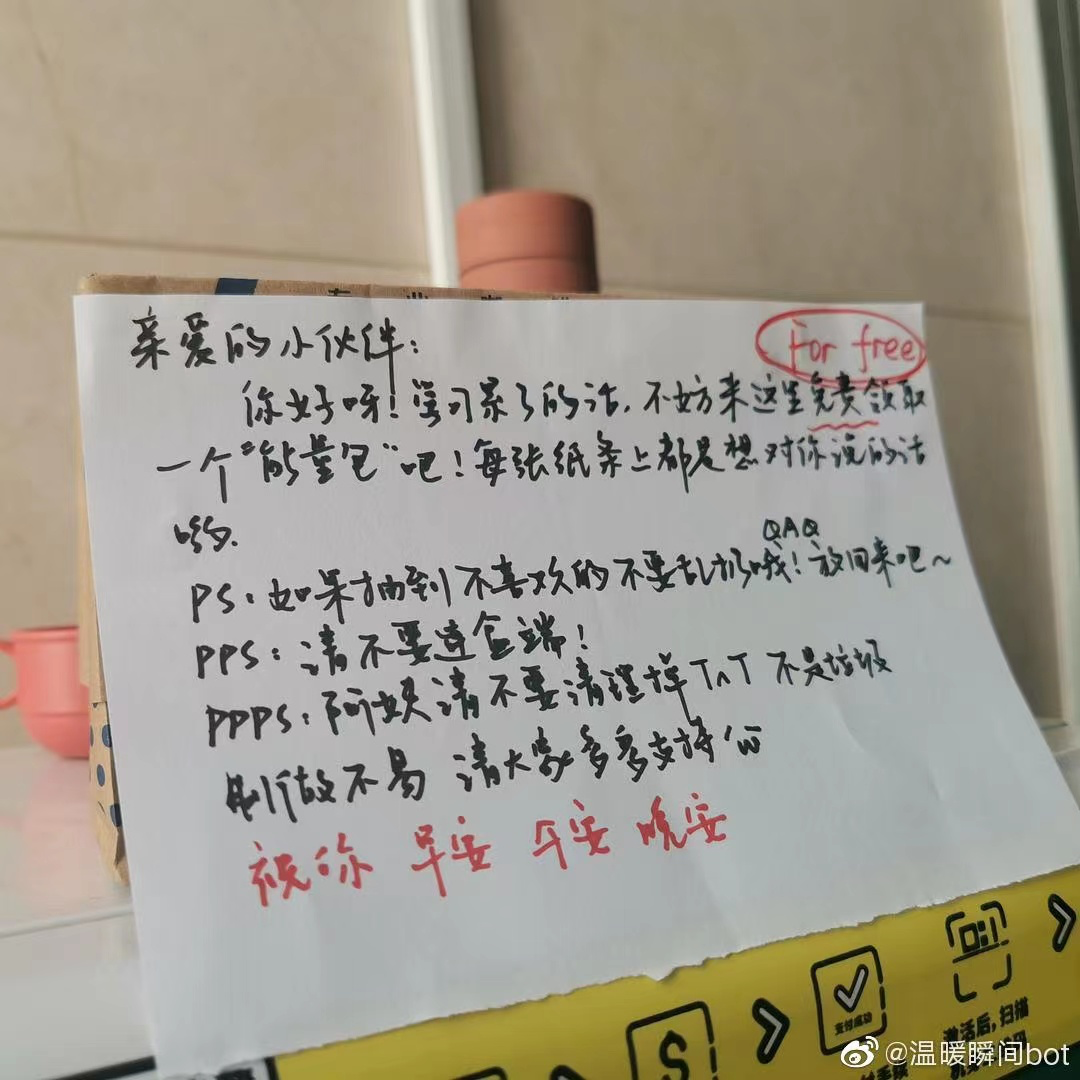 For free
亲爱的小伙伴：
你好呀！学习累了的话，不妨来这里免费领取
一个“能量包”吧！每张纸条上都是想对你说的话
哟.
QAQ
PS：如果抽到不喜欢的不要乱扔哦！放回来吧～
PPS：请不要连盒端！
PPPS：阿姨请不要清理掉TnT 不是垃圾
制做不易 请大家多多支持
祝你 早安 午安 晚安
S
支付成功
激活后，扫描
@温暖瞬间bot